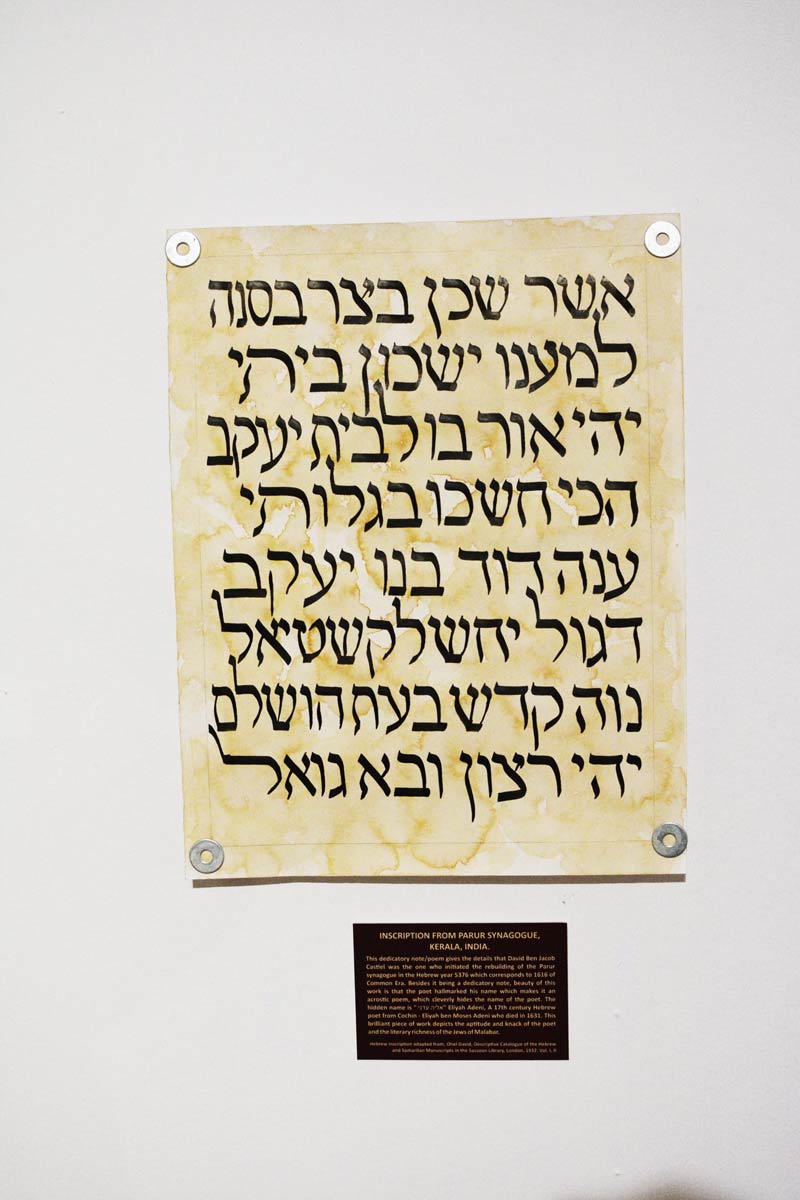 אשר שכן בצר בסנה
למענו ישכון ביתי
יהי אור בו לבית יעקב
הכי חשכו בגלותי
ענה דוד בנו יעקב
דגול יחש לקשטיאל
נוה קדש בעת הושלם
יהי רצון ובא גואל
INSCRIPTION FROM PARUR SYNAGOGUE,
KERALA, INDIA.
This dedicatory note/poem gives the details that David Ben Jacob
Castiel was the one who initiated the rebuilding of the Parur
synagogue in the Hebrew year 5376 which corresponds to 1616 of
Common Era. Besides it being a dedicatory note, beauty of this
work is that the poet hallmarked his name which makes it an
acrostic poem, which cleverly hides the name of the poet. The
hidden name is "אליה עדני" Eliyah Adeni, A 17th century Hebrew
poet from Cochin - Eliyah ben Moses Adeni who died in 1631. This
brilliant piece of work depicts the aptitude and knack of the poet
and the literary richness of the Jews of Malabar.
Hebrew Inscription adapted from, Ohel David, Descriptive Catalogue of the Hebrew
and Samaritan Manuscripts in the Sassoon Library, London, 1932. Vol. I, II